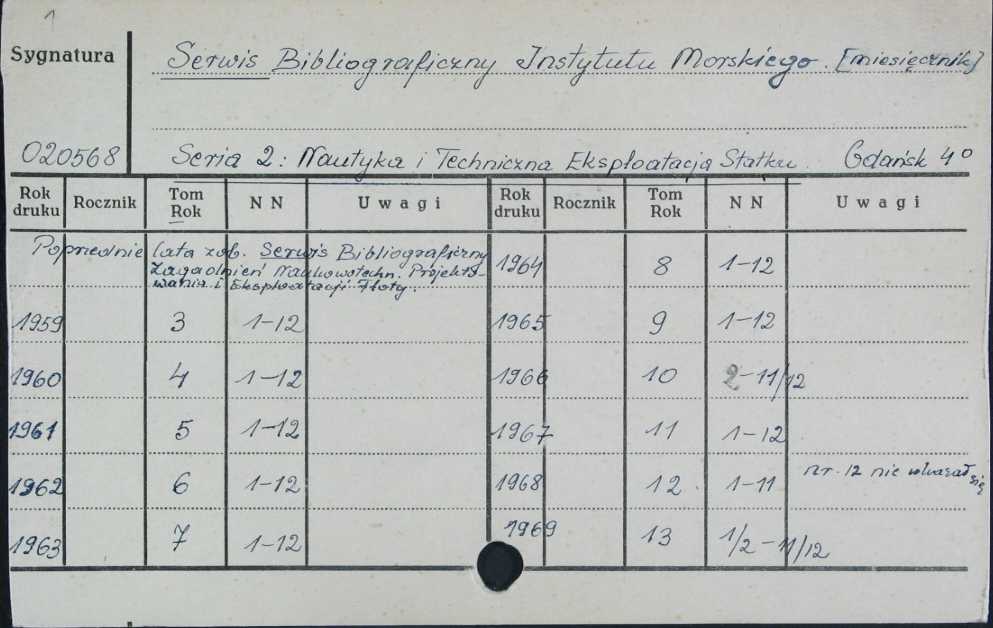 1
Sygnatura
Serwis Bibliograficzny Instytutu Morskiego. [miesięcznik]
020568
Seria 2: Nautyka i Techniczna Eksploatacja Statku. Gdańsk 4°
Rok druku Rocznik Tom Rok NN Uwagi Rok druku Rocznik Tom Rok NN Uwagi
Poprzednie lata zob. Serwis Bibliograficzny
Zagadnień Naukowotechn. Projekto-
wania i Eksploatacji Floty.
1964 8 1-12
1959 3 1-12 1965 9 1-12
1960 4 1-12 1966 10 2-11/12
1961 5 1-12 1967 11 1-12
1962 6 1-12 1968 12 1-11 nr. 12 nie ukazał się
1963 7 1-12 1969 13 1/2-11/12